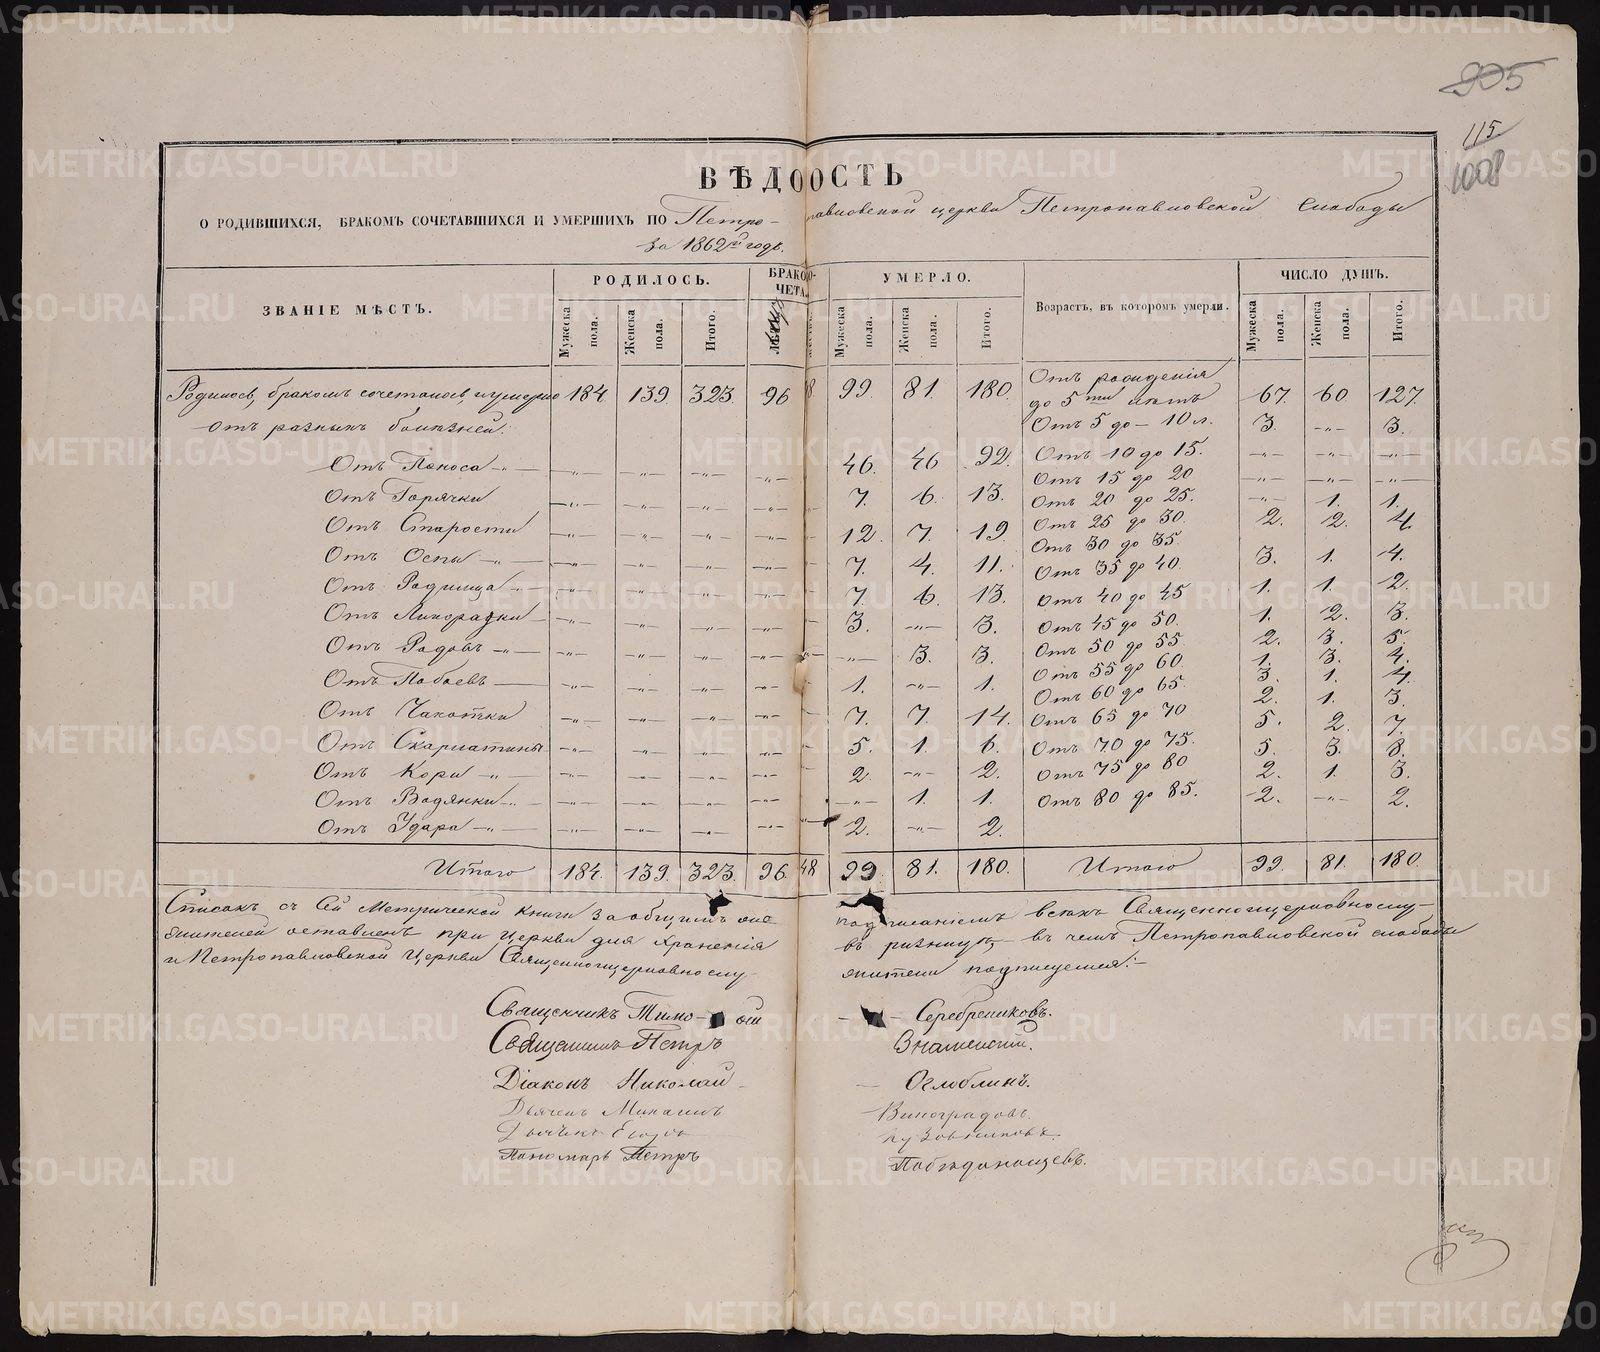 905
115
1008
ВѢДОOСТЬ
О РОДИВШИХСЯ, БРАКОМЪ СОЧЕТАВШИХСЯ И УМЕРШИХЪ ПО Петро-павловской церкви Петропавловской Слободы
За 1862й годъ.
ЗВАНІЕ МѢСТЪ. РОДИЛОСЬ. БРАКО- ЧЕТА. УМЕРЛО. Возрастъ, въ которомъ умерли. ЧИСЛО ДУШЪ.
Мужеска пола. Женска пола. Итого. Мужеска пола. Женска пола. Итого. Мужеска пола. Женска пола. Итого.
Родилось, бракомъ сочеталось, и умерло 184. 139. 323. 96 48 99. 81. 180. Отъ рожденія до 5ти лѣтъ 67. 60. 127.
отъ разныхъ болѣзней: Отъ 5 до - 10 л. 3. -"- 3.
Отъ Поноса -"- -"- -"- -"- -"- 46. 46 92. Отъ 10 до 15. -"- -"- -"-
Отъ 15 до 20 -"- -"- -"-
Отъ Горячки -"- -"- -"- -"- 7. 6. 13. Отъ 20 до 25. -"- 1. 1.
Отъ Старости -"- -"- -"- -"- 12. 7. 19. Отъ 25 до 30. 2. 2. 4
Отъ 30 до 35
Отъ Оспы -"- -"- -"- -"- -"- 7. 4. 11. Отъ 35 до 40. 3. 1. 4.
Отъ Родимца -"- -"- -"- -"- -"- 7. 6. 13. Отъ 40 до 45 1. 1. 2.
Отъ Лихорадки -"- -"- -"- -"- 3. -"- 3. Отъ 45 до 50. 1. 2. 3.
Отъ Родовъ -"- -"- -"- -"- -"- -"- -"- 3. 3. Отъ 50 до 55 2. 3. 5.
Отъ 55 до 60. 1. 3. 4.
Отъ Побоевъ -"- -"- -"- -"- 1. -"- 1. Отъ 60 до 65. 3. 1. 4
2. 1. 3.
Отъ Чахотки -"- -"- -"- -"- 7. 7. 14. Отъ 65 до 70 5. 2. 7.
Отъ Скарлатины -"- -"- -"- -"- 5. 1. 6. Отъ 70 до 75. 5. 3. 8.
Отъ Кори -"- -"- -"- -"- -"- 2. -"- 2. Отъ 75 до 80 2. 1. 3.
Отъ Водянки -"- -"- -"- -"- -"- -"- 1. 1. Отъ 80 до 85. 2. -"- 2.
Отъ Удара -"- -"- -"- -"- -"- 2. -"- 2.
Итого 184. 139. 323. 96. 48 99. 81. 180. Итого 99. 81. 180.
Списокъ съ Сей Метрической Книги за общимъ подписаніемъ всѣхъ Священноцерковнослу-
жителей оставленъ при Церкви для Храненія въ ризницѣ, въ чемъ Петропавловской слободы
и Петропавловской Церкви Священноцерковнослу- жители подписуемся:-
Священникъ Тимо- ей - Серебрениковъ.
Священникъ Петръ Знаменскій.
Діаконъ Николай - Оглоблинъ.
Дьячекъ Михаилъ Виноградовъ.
Дьячекъ Егоръ Кузовниковъ.
Пономарь Петръ Побѣдоносцевъ.
METRIKI.GASO-URAL.RU